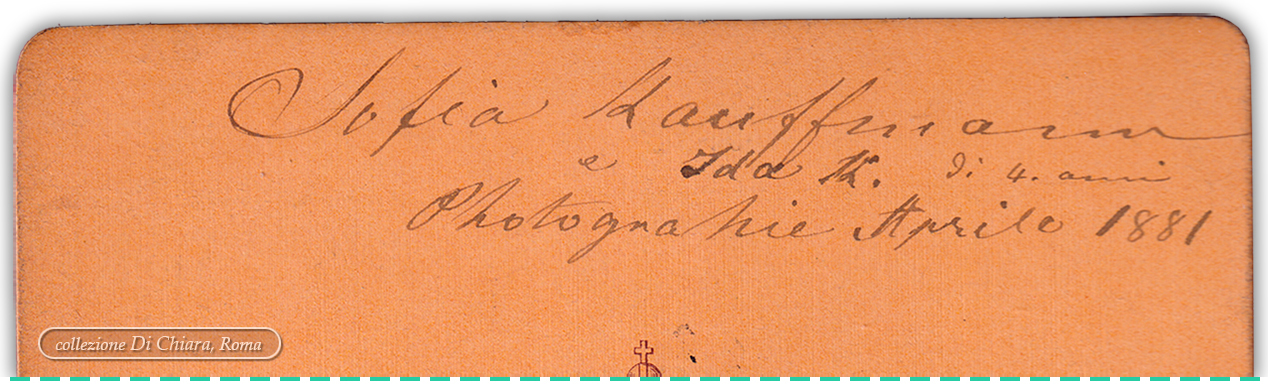 Sofia Kauffmann
e Ida K. di 4. anni
Photograhie Aprile 1881
collezione Di Chiara, Roma